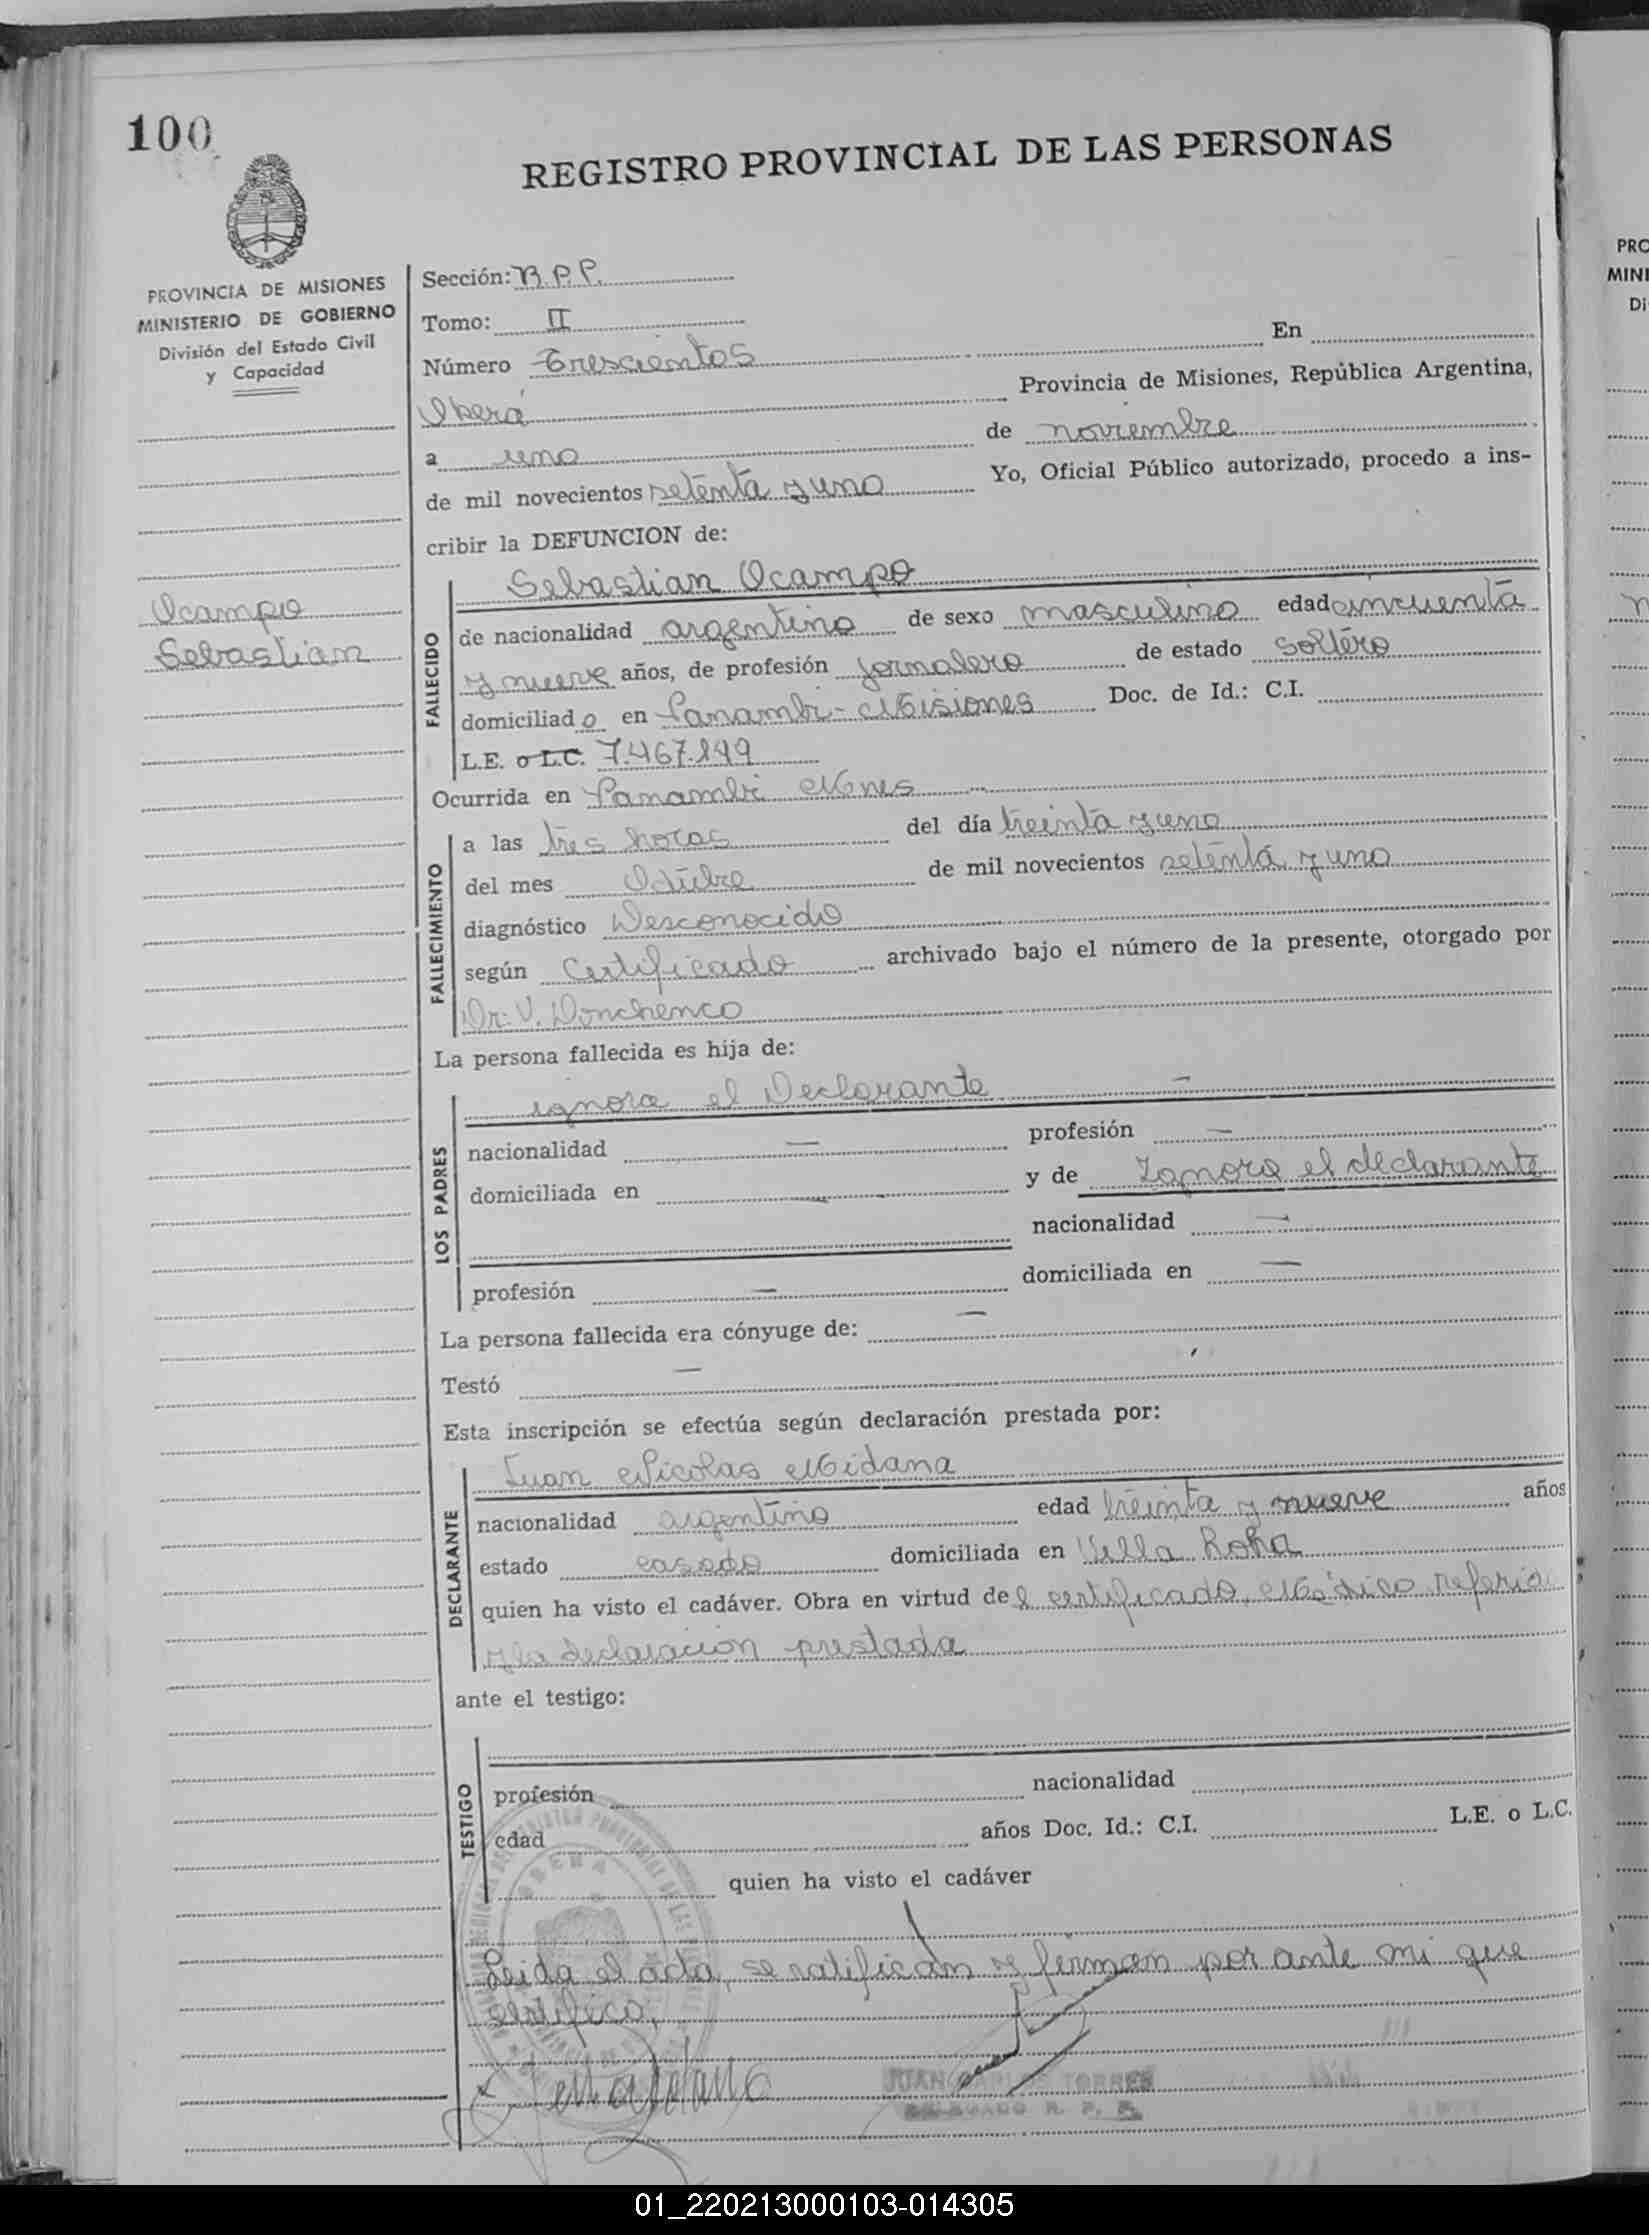 100
REGISTRO PROVINCIAL DE LAS PERSONAS
PROVINCIA DE MISIONES
MINISTERIO DE GOBIERNO
División del Estado Civil
y Capacidad
Ocampo
Sebastian
Sección: R.P.P.
Tomo: II
Número Trescientos En
Oberá Provincia de Misiones, República Argentina,
a uno de noviembre
de mil novecientos setenta y uno Yo, Oficial Público autorizado, procedo a ins-
cribir la DEFUNCION de:
FALLECIDO
Sebastian Ocampo
de nacionalidad argentino de sexo masculino edad cincuenta
y nueve años, de profesión jornalero de estado soltero
domiciliado en Panambi - Misiones Doc. de Id.: C.I.
L.E. o L.C. 7.467.899
Ocurrida en Panambi Mnes
FALLECIMIENTO
a las tres horas del día treinta y uno
del mes Octubre de mil novecientos setenta y uno
diagnóstico Desconocido
según Certificado archivado bajo el número de la presente, otorgado por
Dr. V. Donchenco
La persona fallecida es hija de:
LOS PADRES
ignora el Declarante —
nacionalidad — profesión —
domiciliada en — y de Ignora el declarante
nacionalidad —
profesión — domiciliada en —
La persona fallecida era cónyuge de: —
Testó —
Esta inscripción se efectúa según declaración prestada por:
DECLARANTE
Juan Nicolas Midana
nacionalidad argentino edad treinta y nueve años
estado casado domiciliada en Villa
quien ha visto el cadáver. Obra en virtud del certificado Médico referido
y la declaracion prestada
ante el testigo:
TESTIGO
profesión nacionalidad
edad años Doc. Id.: C.I. L.E. o L.C.
quien ha visto el cadáver
Leida el acta, se ratifican y firman por ante mi que
certifico,
JUAN CARLOS TORRES
DELEGADO R. P. P.
PRO
MINI
Di
01_220213000103-014305